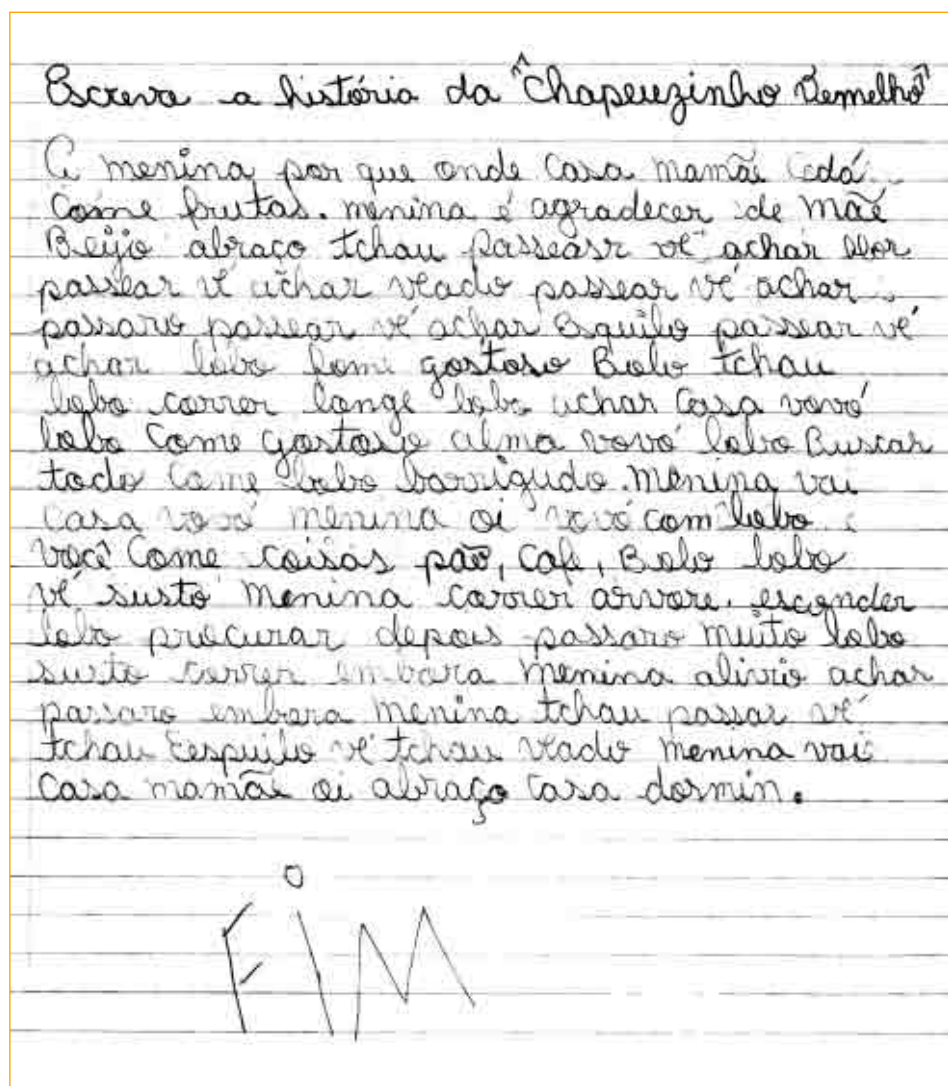 Escreva a história da "Chapeuzinho Vemelho"
A menina por que onde casa mamãe cedá
come frutas. menina é agradecer de mãe
Beijo abraço tchau passeasr vê achar flor
passear vê achar veado passear vê achar
passaro passear vê achar Esquilo passear vê
achar lobo fome gostoso Bolo tchau
lobo correr longe lobo achar casa vovó
lobo come gostoso alma vovó lobo Buscar
todo come lobo barrigudo. menina vai
casa vovó menina oi vovó com lobo
você come coisas pão, café, Bolo lobo
vê susto menina correr arvore. esconder
lobo procurar depois passaro muito lobo
susto correr embora menina alivio achar
passaro embora menina tchau passar vê
tchau Eespuilo vê tchau veado menina vai
casa mamãe oi abraço casa dormin.
FiM